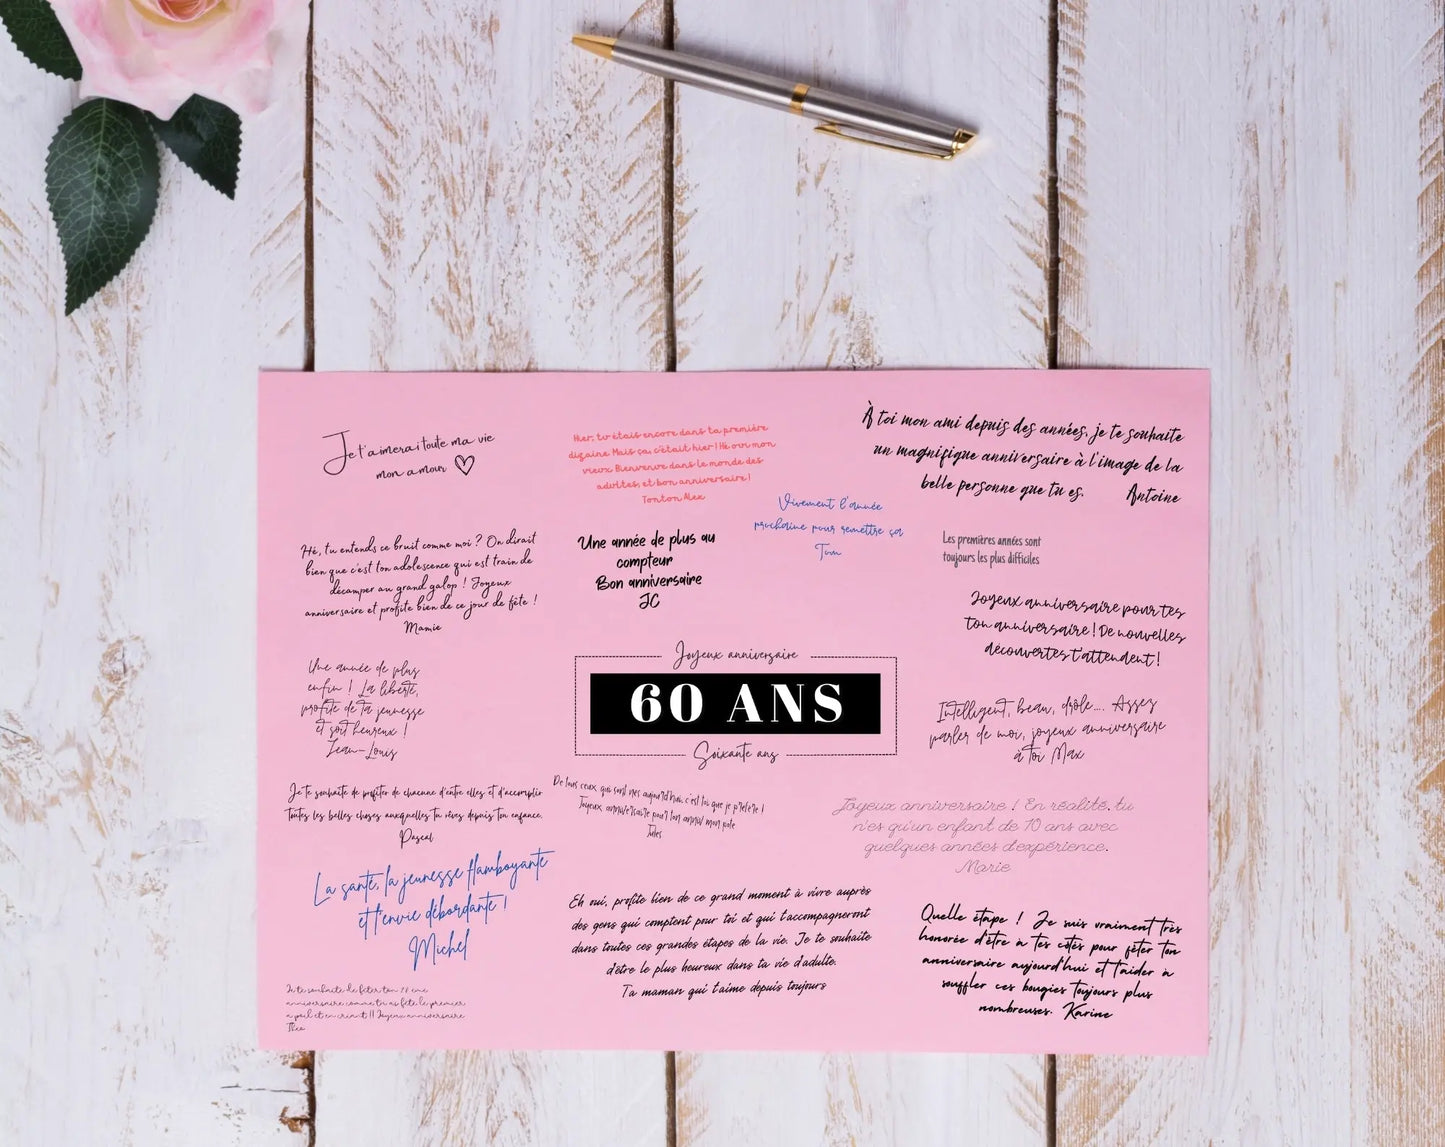 Je t'aimerai toute ma vie
mon amour
Hier, tu étais encore dans ta première
dizaine. Mais ça, c'était hier ! Hé oui mon
vieux. Bienvenue dans le monde des
adultes, et bon anniversaire !
Tonton Alex
À toi mon ami depuis des années, je te souhaite
un magnifique anniversaire à l'image de la
belle personne que tu es. Antoine
Vivement l'année
prochaine pour remettre ça
Tom
Hé, tu entends ce bruit comme moi ? On dirait
bien que c'est ton adolescence qui est train de
décamper au grand galop ! Joyeux
anniversaire et profite bien de ce jour de fête !
Mamie
Une année de plus au
compteur
Bon anniversaire
JC
Les premières années sont
toujours les plus difficiles
Joyeux anniversaire pour tes
ton anniversaire ! De nouvelles
découvertes t'attendent !
Une année de plus
enfin ! La liberté,
profite de ta jeunesse
et soit heureux !
Jean-Louis
Joyeux anniversaire
60 ANS
Soixante ans
Intelligent, beau, drôle.... Assez
parler de moi, joyeux anniversaire
à toi Max
Je te souhaite de profiter de chacune d'entre elles et d'accomplir
toutes les belles choses auxquelles tu rêves depuis ton enfance.
Pascal
De tous ceux qui sont nés aujourd'hui, c'est toi que je préfère !
Joyeux anniversaire pour ton anniv mon pote
Jules
Joyeux anniversaire ! En réalité, tu
n'es qu'un enfant de 10 ans avec
quelques années d'expérience.
Marie
La santé, la jeunesse flamboyante
et l'envie débordante !
Michel
Eh oui, profite bien de ce grand moment à vivre auprès
des gens qui comptent pour toi et qui t'accompagneront
dans toutes ces grandes étapes de la vie. Je te souhaite
d'être le plus heureux dans ta vie d'adulte.
Ta maman qui t'aime depuis toujours
Quelle étape ! Je suis vraiment très
honorée d'être à tes côtés pour fêter ton
anniversaire aujourd'hui et t'aider à
souffler ces bougies toujours plus
nombreuses. Karine
Je te souhaite de fêter ton ème
anniversaire comme tu as fêté le premier
à poil et en criant !! Joyeux anniversaire
Théo